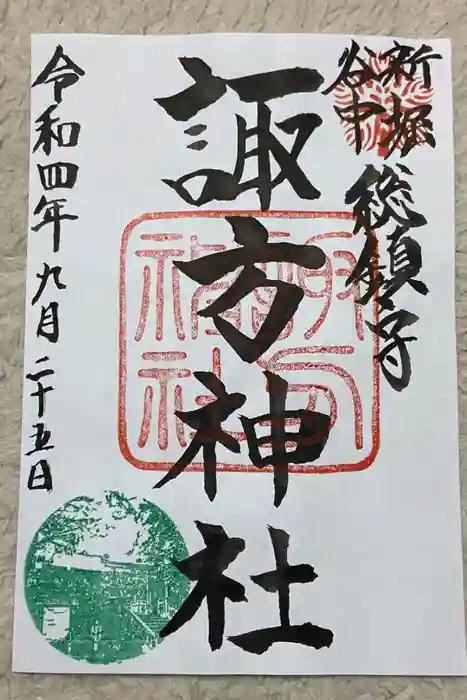 新堀
谷中
総鎮守
諏方神社
令和四年九月二十五日
諏方神社